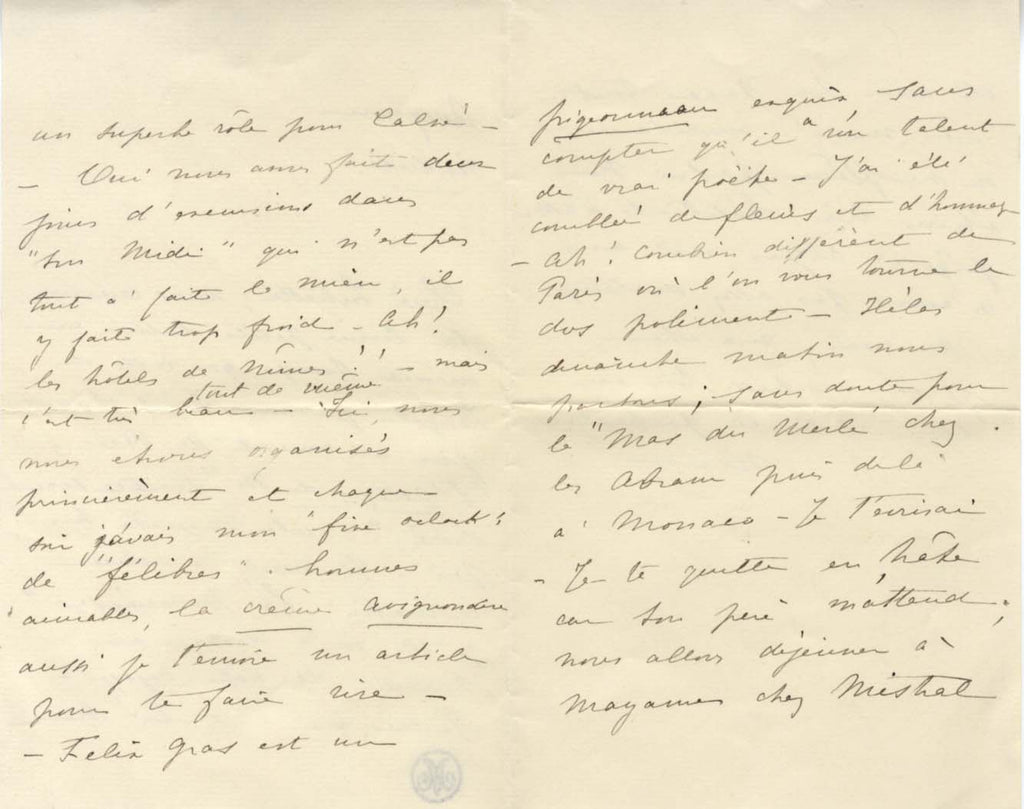 un superbe rôle pour Calvé -
- Oui nous avons fait deux
jours d'excursions dans
"ton Midi" qui n'est pas
tout à fait le mien, il
y fait trop froid - Ah!
les hôtels de Nîmes! - mais
c'est très beau tout de même - Ici, nous
nous étions organisés
princièrement et chaque
soir j'avais mon "five oclock"
de "félibres". hommes
aimables, la crème avignonnaise
aussi je t'envoie un article
pour te faire rire -
- Felix Gras est un
pigeonneau exquis, sans
compter qu'il a un talent
de vrai poëte - J'ai été
comblée de fleurs et d'hommages
- Ah! combien différent de
Paris où l'on vous tourne le
dos poliment - Hélas
dimanche matin nous
partons; sans doute pour
le "Mas du Merle chez
les Abram puis delà
à Monaco - Je t'écrirai
- Je te quitte en hâte
car ton père m'attend;
nous allons déjeuner à
Mayanes chez Mistral